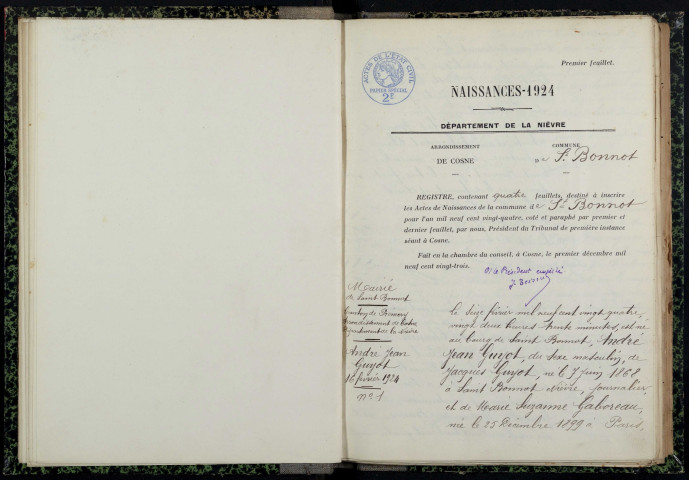 Premier feuillet.
ACTES DE L'ETAT CIVIL
PAPIER SPECIAL
2F
NAISSANCES-1924
DÉPARTEMENT DE LA NIÈVRE
ARRONDISSEMENT
DE COSNE
COMMUNE
DE St Bonnot
REGISTRE, contenant quatre feuillets, destiné à inscrire
les Actes de Naissances de la commune de St Bonnot
pour l'an mil neuf cent vingt-quatre, coté et paraphé par premier et
dernier feuillet, par nous, Président du Tribunal de première instance
séant à Cosne.
Fait en la chambre du conseil, à Cosne, le premier décembre mil
neuf cent vingt-trois.
le Président
Mairie
de Saint Bonnot
Canton de Prémery
Arrondissement de
Département de la Nièvre
André Jean
Guyot
16 février 1924
n° 1
Le Seize février mil neuf cent vingt quatre,
vingt deux heures trente minutes, est né
au bourg de Saint Bonnot, André
Jean Guyot, du sexe masculin, de
Jacques Guyot, né le 7 juin 1868
à Saint Bonnot Nièvre, journalier
et de Marie Suzanne Gaboreau,
née le 25 Décembre 1899 à Paris,